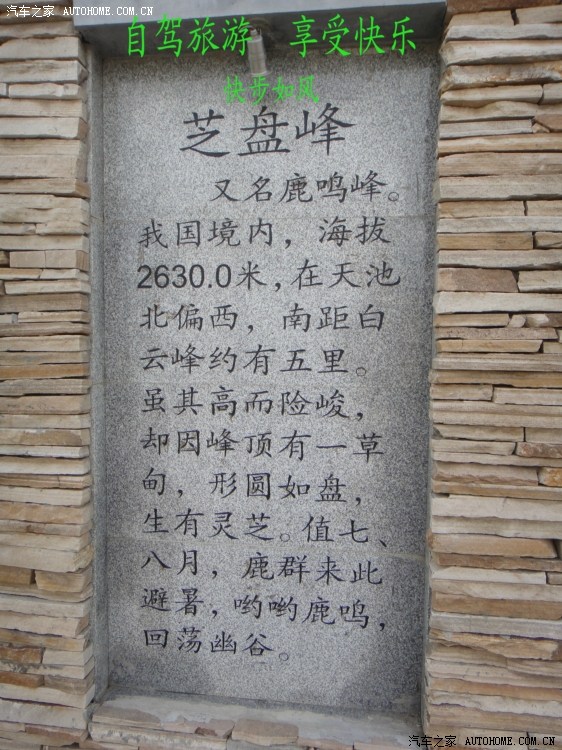 汽车之家 AUTOHOME.COM.CN
自驾旅游 享受快乐
快步如风
芝盘峰
又名鹿鸣峰。
我国境内，海拔
2630.0米,在天池
北偏西，南距白
云峰约有五里。
虽其高而险峻，
却因峰顶有一草
甸，形圆如盘，
生有灵芝。值七、
八月，鹿群来此
避暑，哟哟鹿鸣，
回荡幽谷。
汽车之家 AUTOHOME.COM.CN